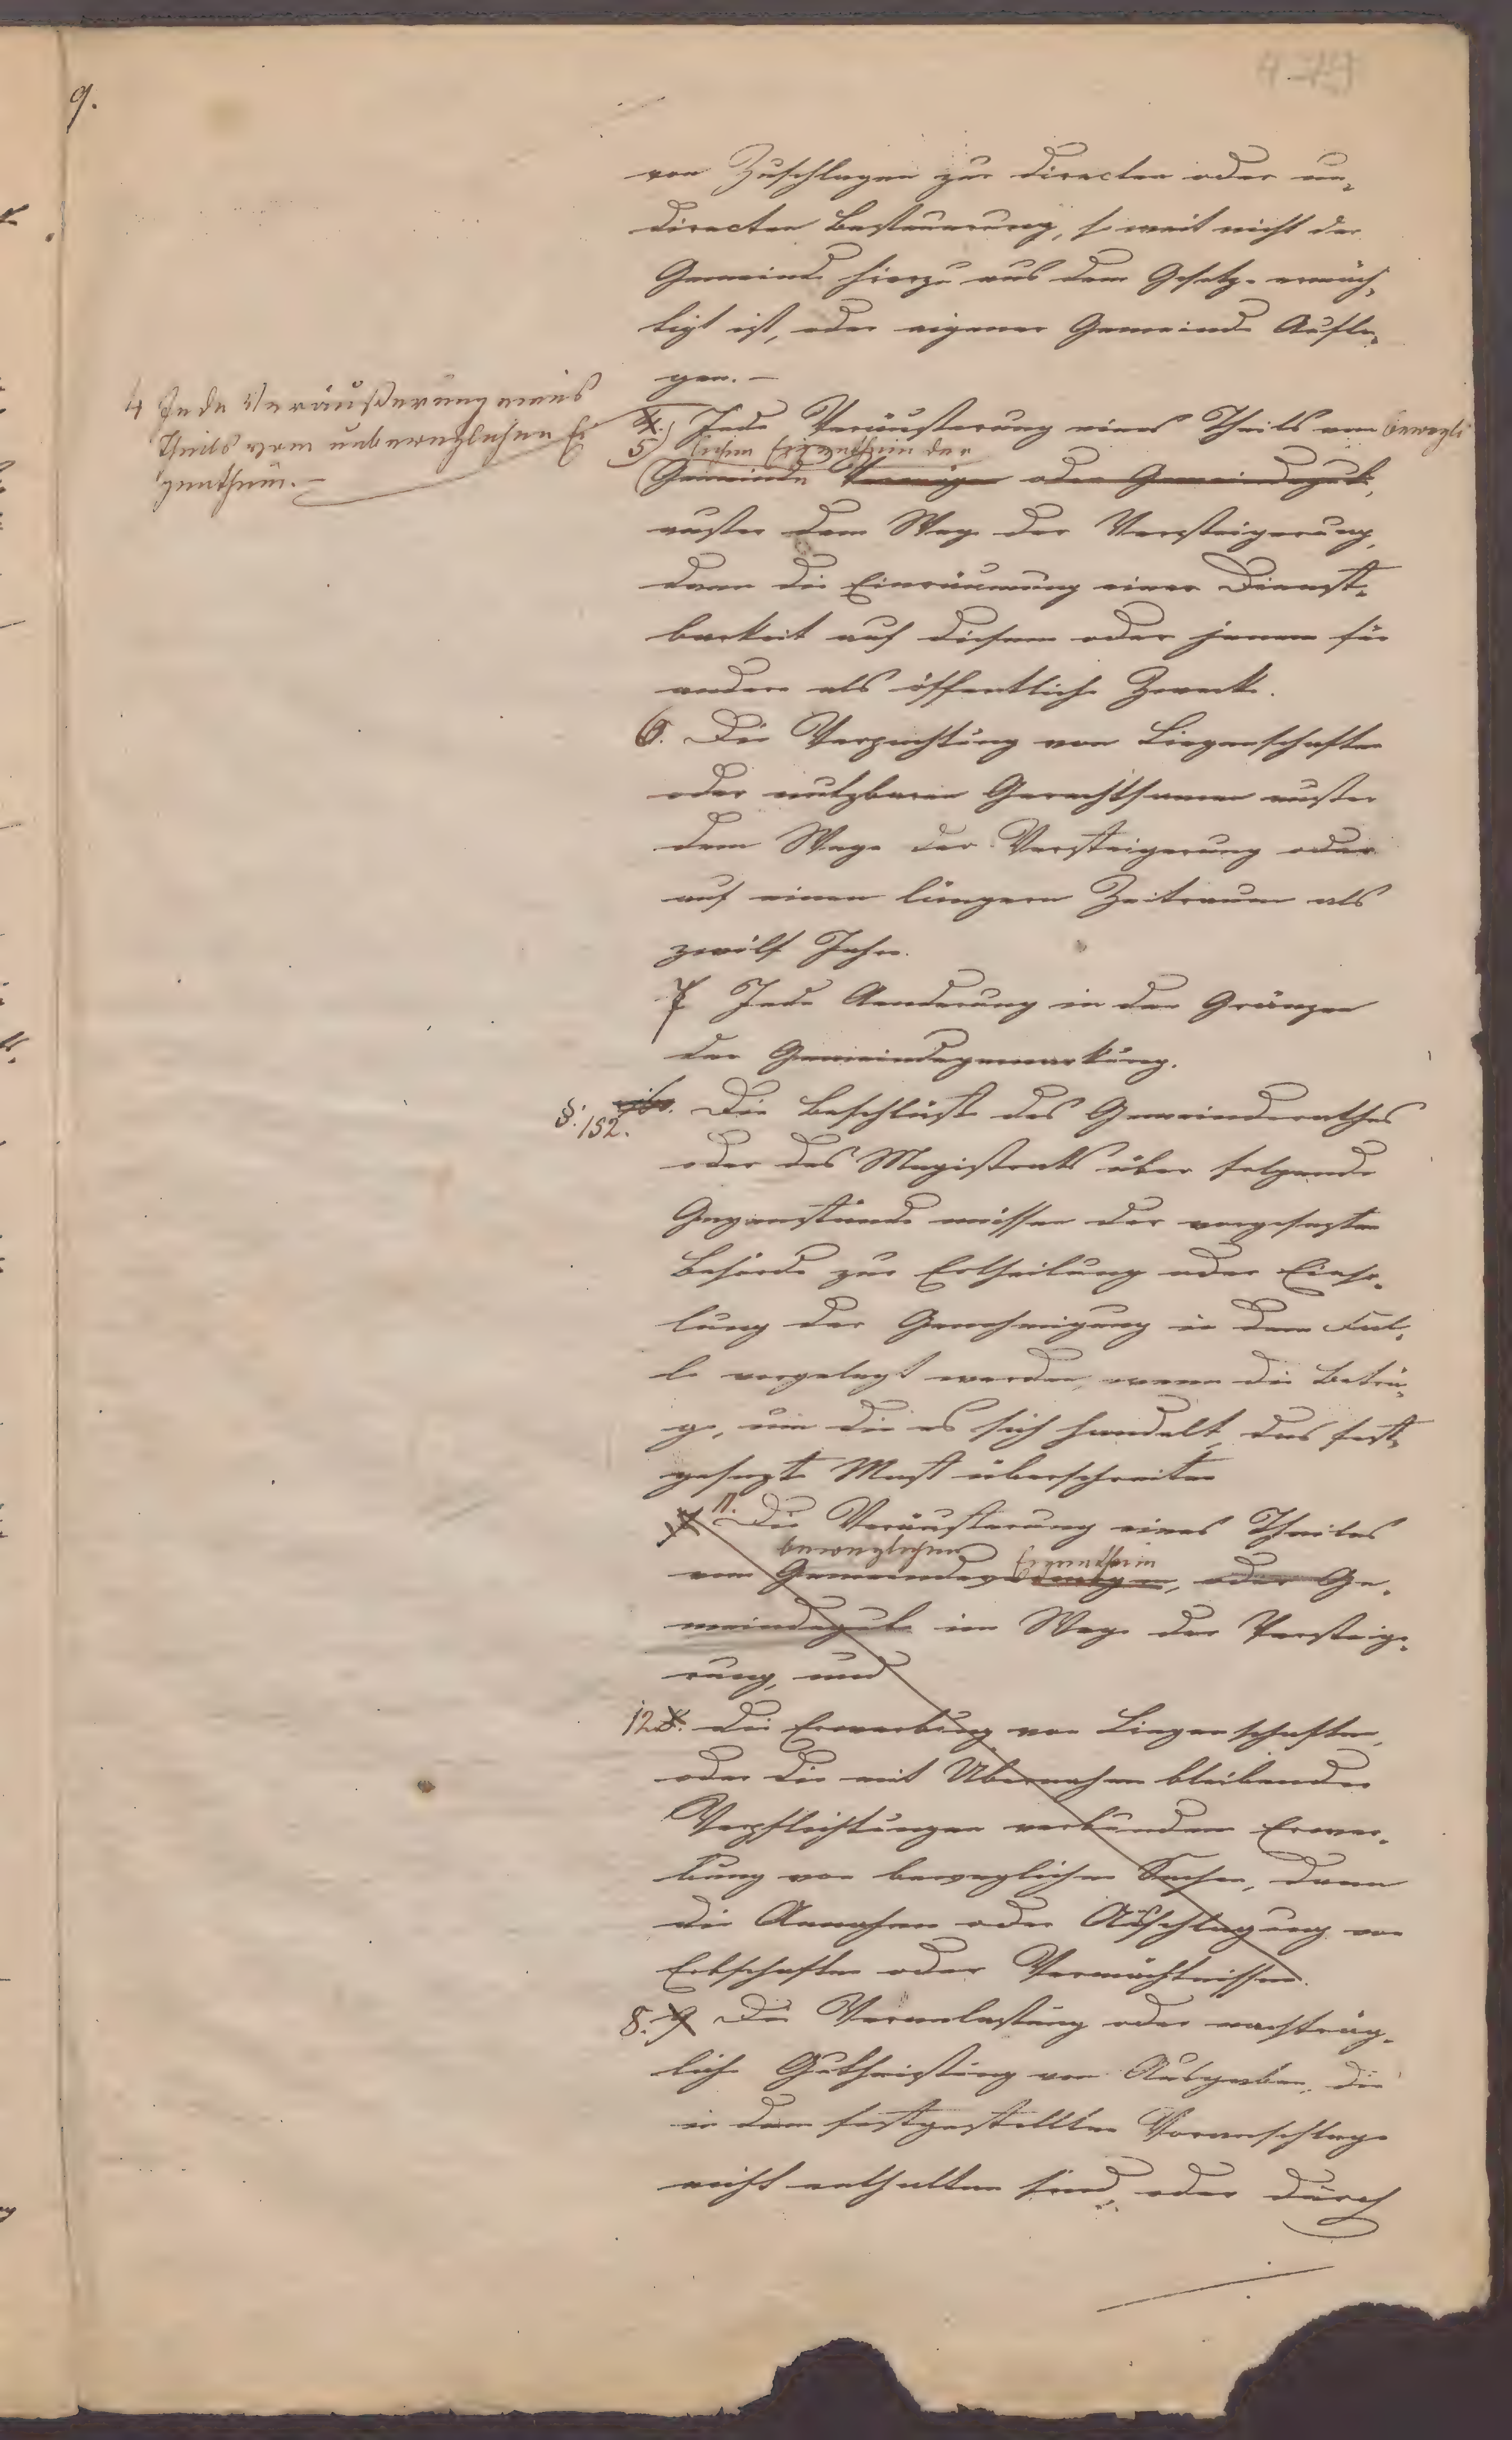 9.
479
von Zuschlagen zur directen oder in-
directen Besteuerung, so weit nicht der
Gemeinde hierzu aus dem Gesetze ermäch-
tigt ist, oder eigener Gemeinde Aufla-
gen. –
4 Jede Veräußerung eines
Theils vom unbeweglichen Ei
genthum. –
4.) Jede Veräusserung eines Theils vom bewegli
5) chen Eigenthum der
Gemeinde Vermögen oder Gemeindegute,
ausser dem Wege der Versteigerung,
dann die Einräumung einer Dienst-
barkeit auf diesem oder jenem für
andere als öffentliche Zwecke.
6. Die Verpachtung von Liegenschaften
oder nutzbaren Gerechtsamen ausser
dem Wege der Versteigerung oder
auf einen längern Zeitraum als
zwölf Jahre.
7 Jede Aenderung in den Gränzen
der Gemeindegemarkung.
§. 152. Die Beschlüsse des Gemeinderathes
oder des Magistrats über folgende
Gegenstände müssen der vorgesezten
Behörde zur Ertheilung oder Einho-
lung der Genehmigung in dem Fal-
le vorgelegt werden, wenn die Beträ-
ge, um die es sich handelt, das fest-
gesezte Mass überschreiten
11. Die Veräusserung eines Theiles
beweglichen Eigenthum
vom Gemeindevermögen, oder Ge-
meindegute im Wege der Versteige-
rung, und
12. Die Erwerbung von Liegenschaften,
oder die mit Übernahme bleibender
Verpflichtungen verbundene Erwer-
bung von beweglichen Sachen, dann
die Annahme oder Ausschlagung von
Erbschaften oder Vermächtnissen.
8. 9 Die Veranlassung oder nachträg-
liche Gutheissung von Ausgaben, die
in dem festgestellten Voranschlage
nicht enthalten sind, oder durch